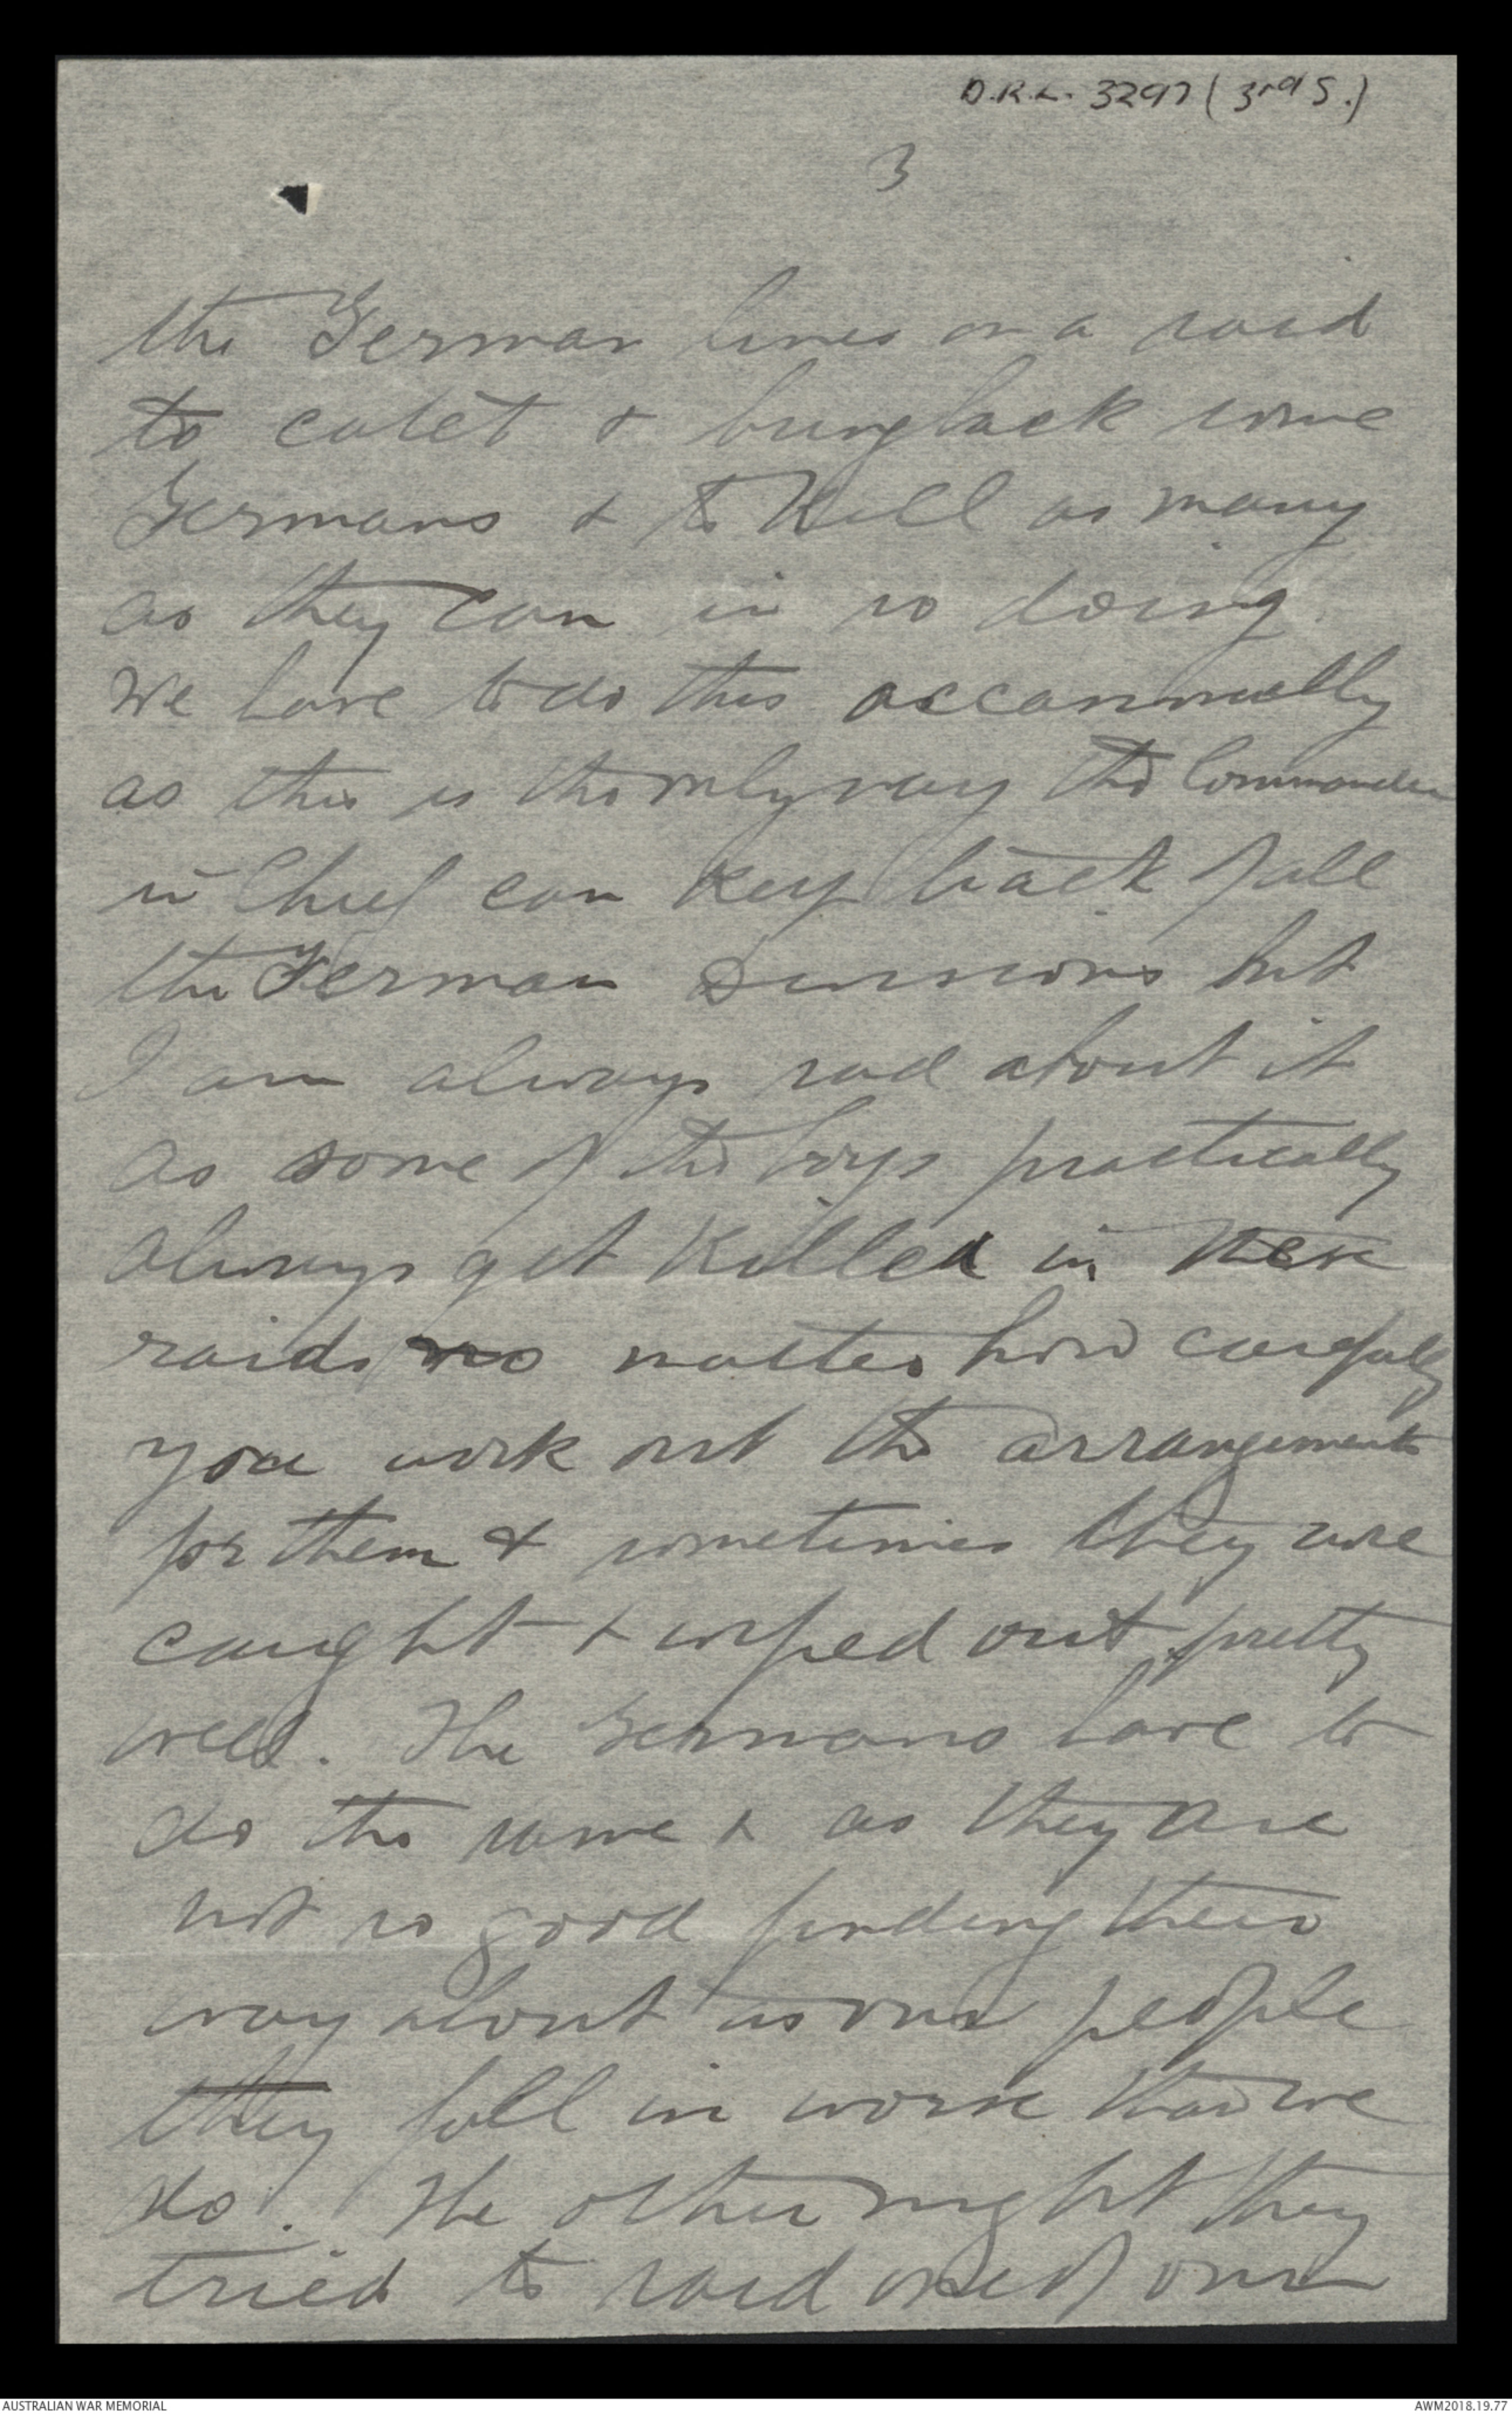 D.R.L. 3297 (3rd S.)
3
the German lines on a raid
to catch & bring back some
Germans & to kill as many
as they can in so doing.
We have to do this occasionally
as this is the only way the Commander
in Chief can keep track of all
the German Divisions but
I am always sad about it
as some of the boys practically
always get killed in these
raids no matter how carefully
you work out the arrangements
for them & sometimes they are
caught & wiped out pretty
well. The Germans have to
do the same & as they are
not so good finding their
way about as our people
they fall in worse than we
do. The other night they
tried to raid one of our
AUSTRALIAN WAR MEMORIAL
AWM2018.19.77